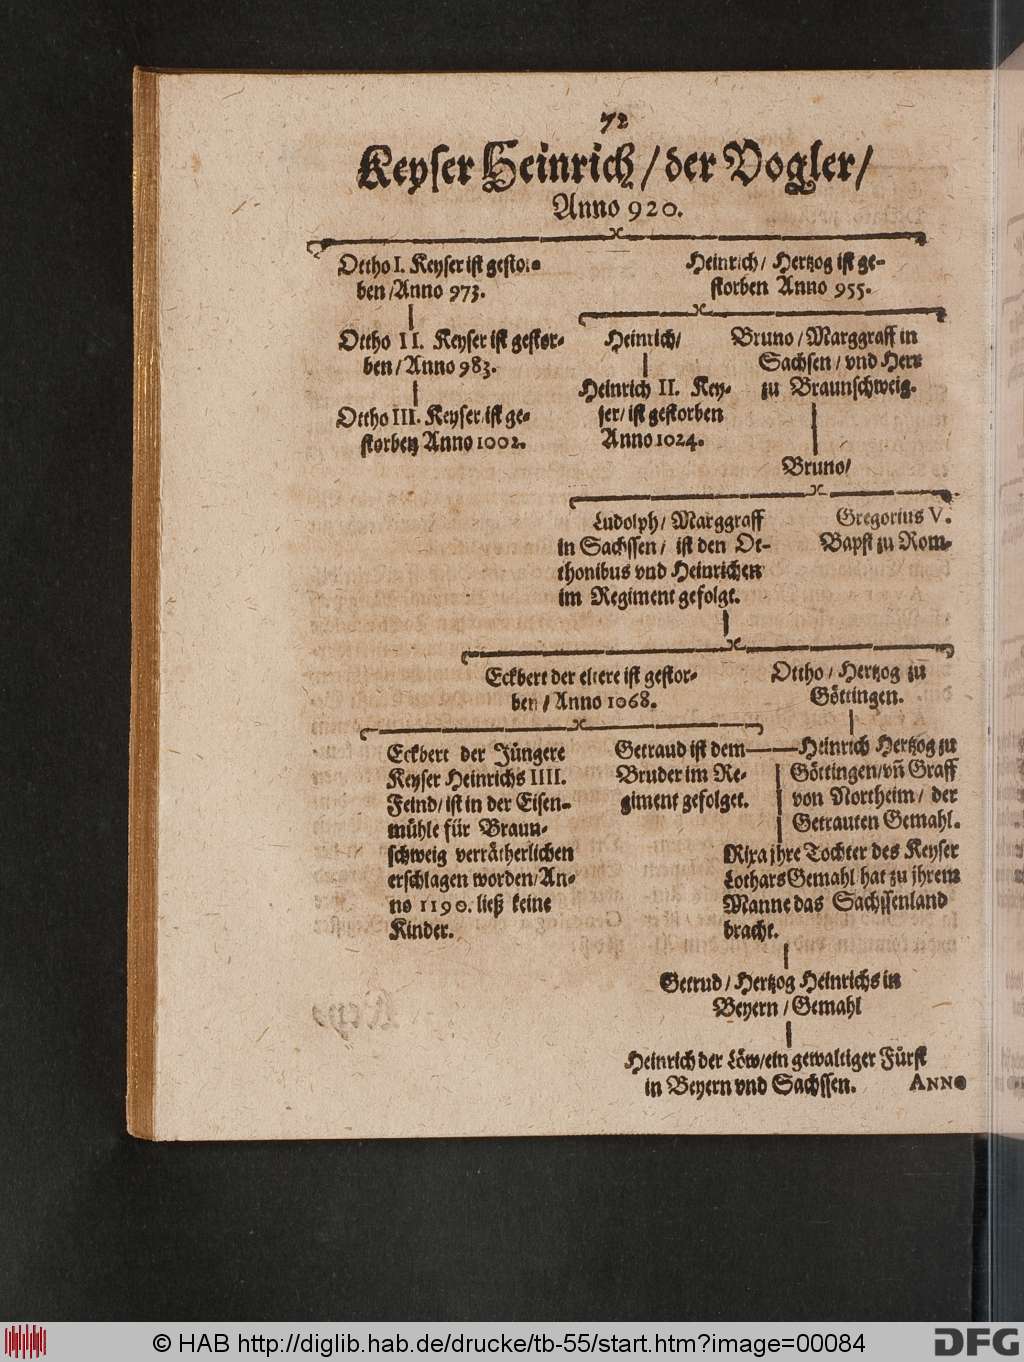 72
Keyser Heinrich / der Vogler /
Anno 920.
Ottho I. Keyser ist gestor-
ben / Anno 973.
Heinrich / Hertzog ist ge-
storben Anno 955.
Ottho II. Keyser ist gestor-
ben / Anno 983.
Heinrich /
Bruno / Marggraff in
Sachsen / vnd Herr
zu Braunschweig.
Heinrich II. Key-
ser / ist gestorben
Anno 1024.
Ottho III. Keyser / ist ge-
storben Anno 1002.
Bruno /
Ludolph / Marggraff
in Sachssen / ist den Ot-
thonibus vnd Heinrichen
im Regiment gefolgt.
Gregorius V.
Bapst zu Rom.
Eckbert der eltere ist gestor-
ben / Anno 1068.
Ottho / Hertzog zu
Göttingen.
Eckbert der Jüngere
Keyser Heinrichs IIII.
Feind / ist in der Eisen-
mühle für Braun-
schweig verrätherlichen
erschlagen worden / An-
no 1190. ließ keine
Kinder.
Getraud ist dem
Bruder im Re-
giment gefolget.
Heinrich Hertzog zu
Göttingen / vn̄ Graff
von Northeim / der
Getrauten Gemahl.
Rixa jhre Tochter des Keyser
Lothars Gemahl hat zu jhrem
Manne das Sachssenland
bracht.
Getrud / Hertzog Heinrichs in
Beyern / Gemahl
Heinrich der Löw / ein gewaltiger Fürst
in Beyern vnd Sachssen.
ANNO
© HAB http://diglib.hab.de/drucke/tb-55/start.htm?image=00084
DFG